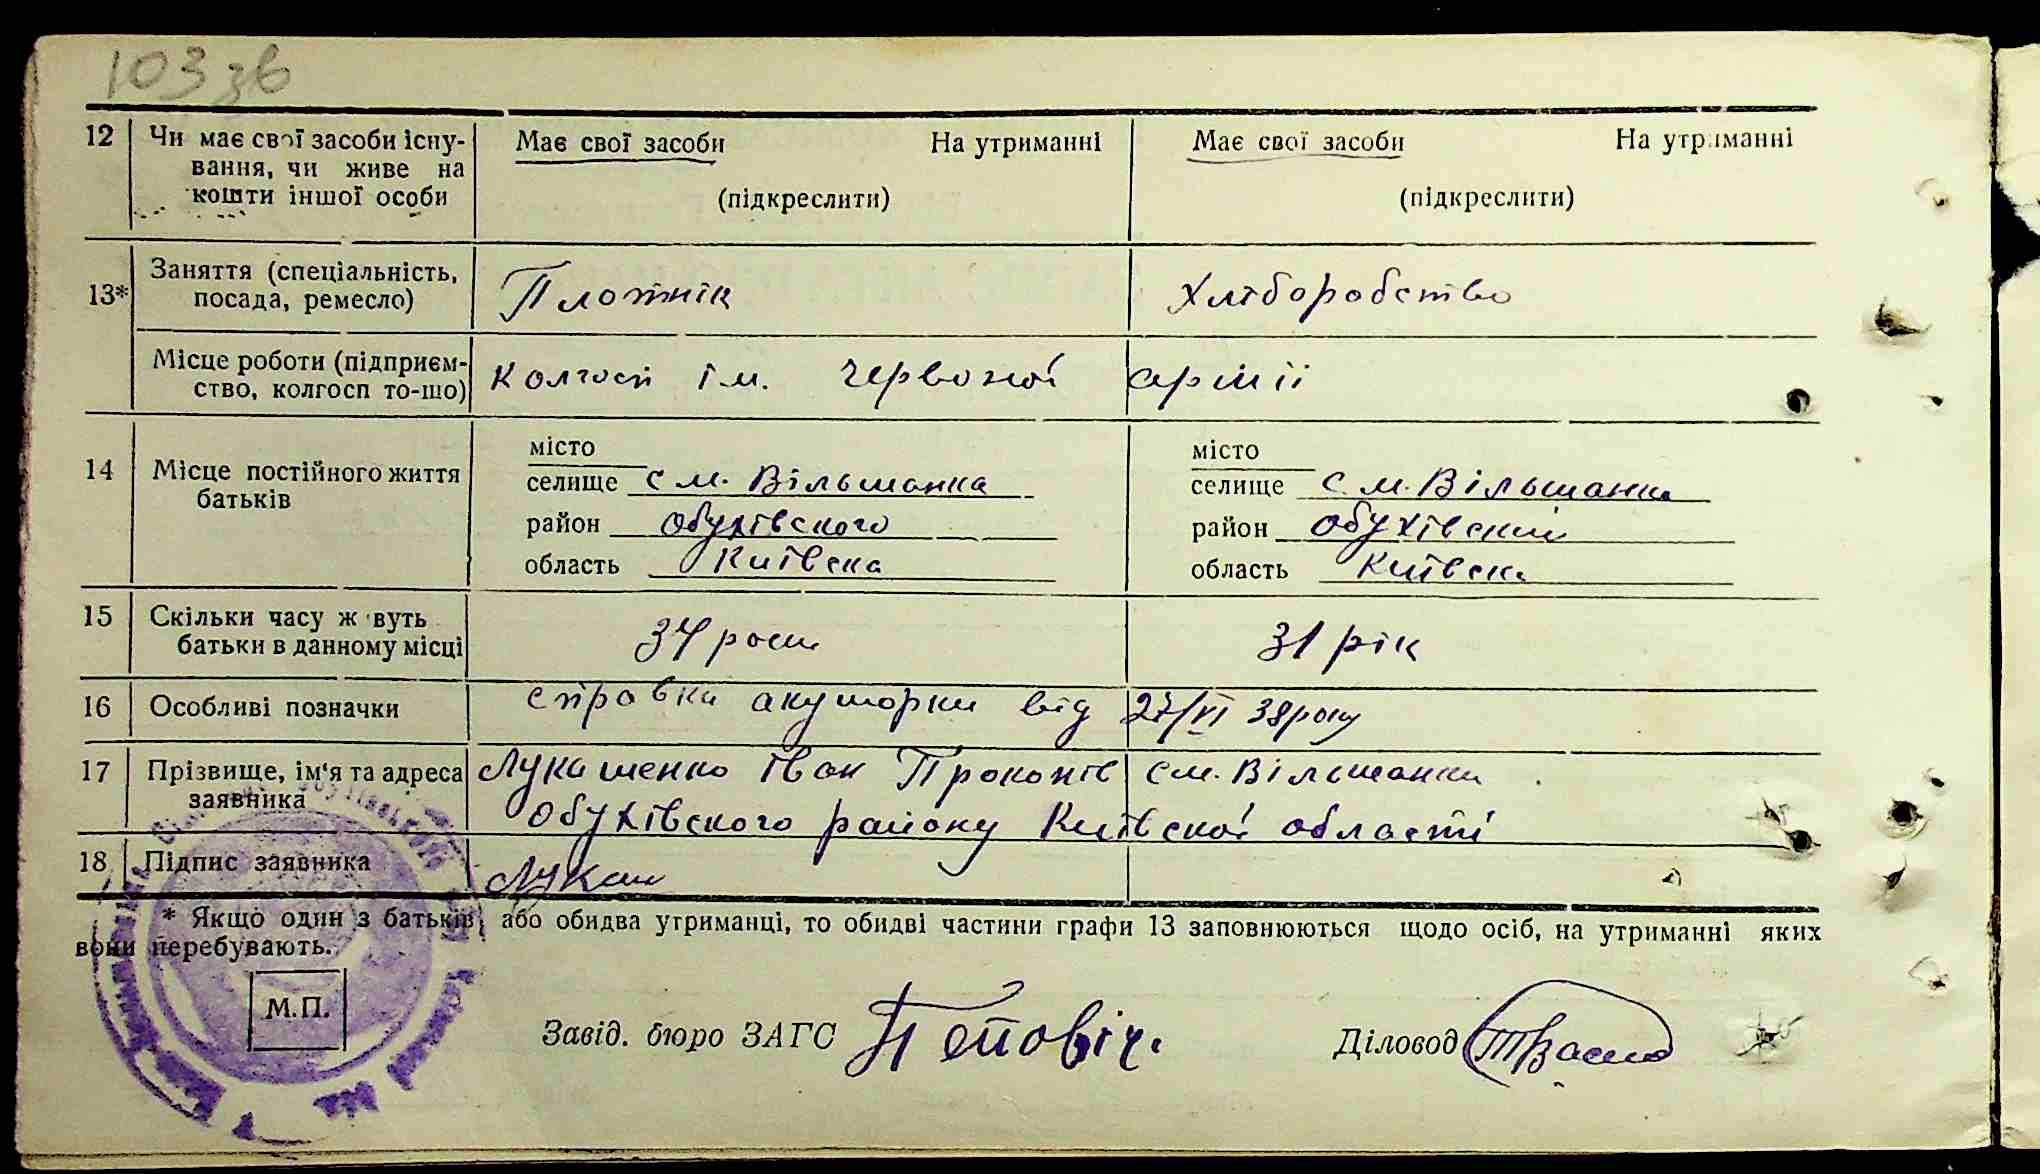 103 зв
12 Чи має свої засоби існу- Має свої засоби На утриманні Має свої засоби На утриманні
вання, чи живе на
кошти іншої особи (підкреслити) (підкреслити)
Заняття (спеціальність,
13* посада, ремесло) Плотнік Хліборобство
Місце роботи (підприєм- Колгосп ім. Червоної армії
ство, колгосп то-що)
місто місто
14 Місце постійного життя селище с м. Вільшанка селище с. м. Вільшанка
батьків район Обухівського район Обухівский
область Київска область Київска
15 Скільки часу ж вуть
батьки в данному місці 34 роки 31 рік
16 Особливі позначки справка акушорки від 27/VI 38 року
17 Прізвище, ім'я та адреса Лукашенко Іван Прокопів см. Вільшанка
заявника Обухівского району Київскої області
18 Підпис заявника Лукаш
* Якщо один з батьків, або обидва утриманці, то обидві частини графи 13 заповнюються щодо осіб, на утриманні яких
вони перебувають.
М.П.
Завід. бюро ЗАГС Попович. Діловод